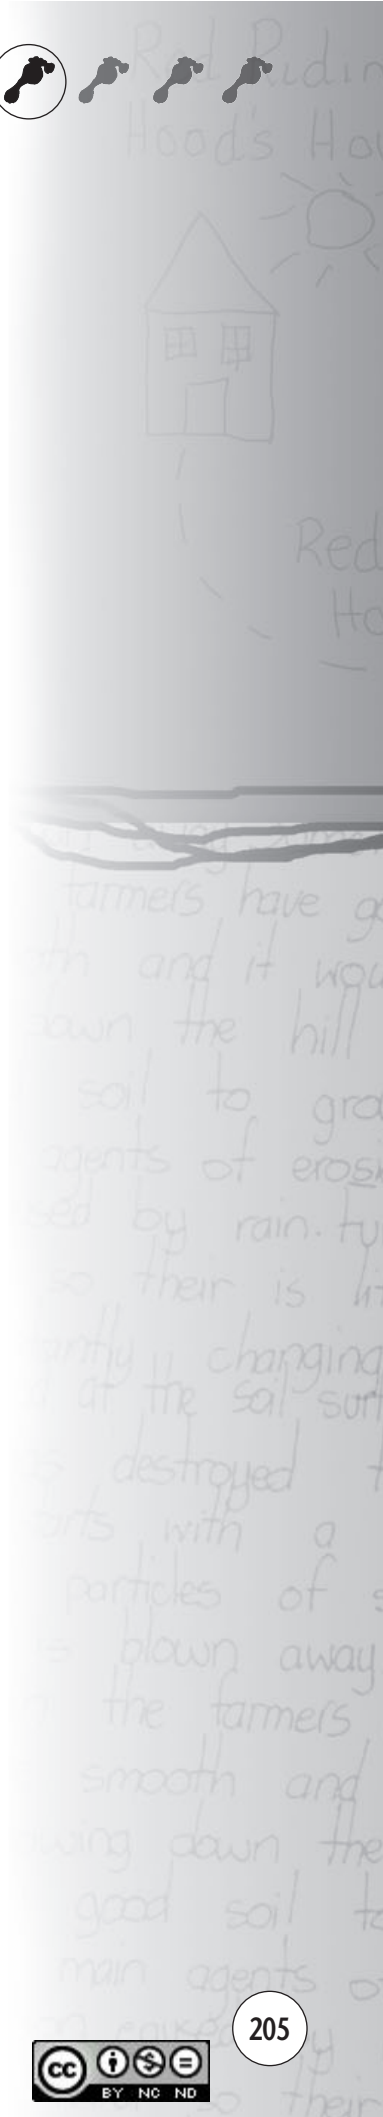 Red Ridin
Hood's Hou
Red
Ho
farmers have go
and it wou
down the hill
soil to gro
agents of erosi
by rain. tu
so their is lit
changing
at the soil surf
destroyed t
with a
particles of s
blown away
the farmers
smooth and
down the
good soil to
main agents o
205
by
cc
BY NC ND
so their